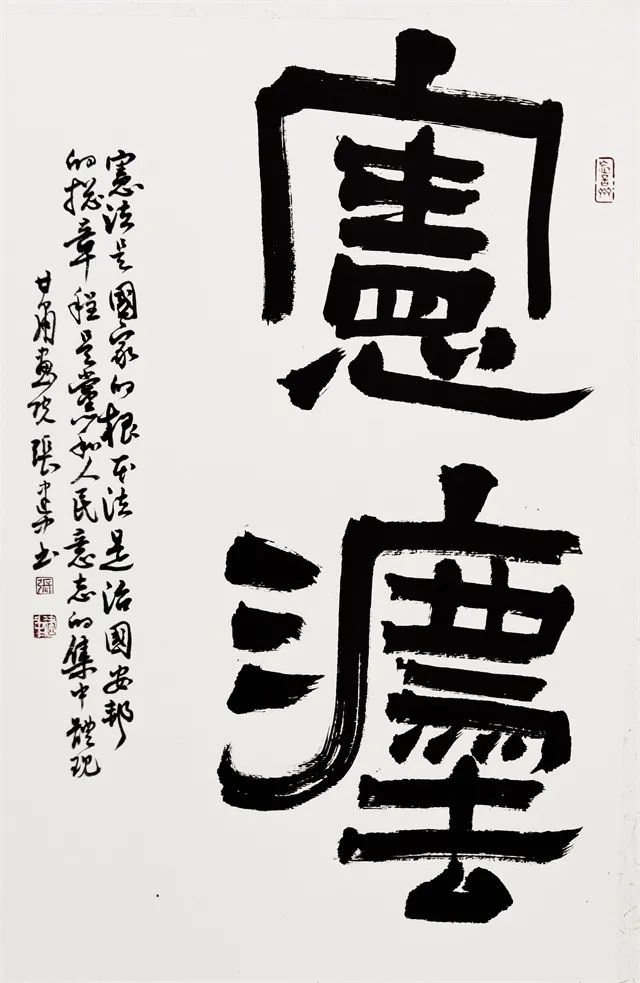 憲灋
憲法是國家的根本法是治國安邦
的總章程是黨和人民意志的集中體現
甘肅畫院張書
張